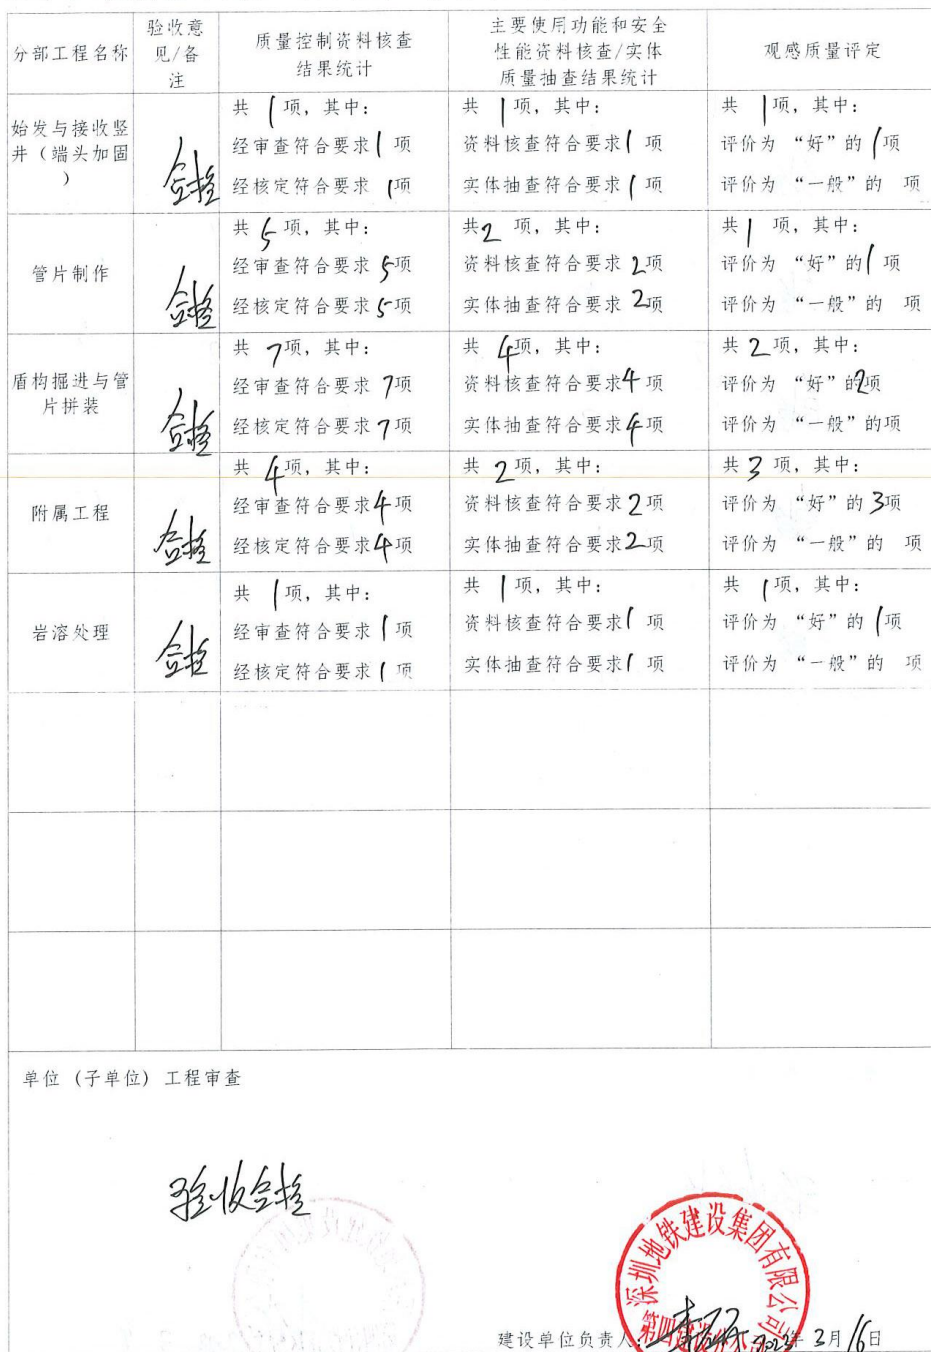 分部工程名称
验收意
见/备
注
质量控制资料核查
结果统计
主要使用功能和安全
性能资料核查/实体
质量抽查结果统计
观感质量评定
始发与接收竖
井(端头加固
)
合格
共 1项, 其中:
经审查符合要求1 项
经核定符合要求 1项
共 1项, 其中:
资料核查符合要求1 项
实体抽查符合要求1 项
共 1项, 其中:
评价为 “好”的1项
评价为 “一般”的 项
管片制作
合格
共 5 项, 其中:
经审查符合要求 5项
经核定符合要求5项
共2 项, 其中:
资料核查符合要求 2项
实体抽查符合要求 2项
共1 项, 其中:
评价为 “好”的1 项
评价为 “一般”的 项
盾构掘进与管
片拼装
合格
共 7项, 其中:
经审查符合要求 7项
经核定符合要求7项
共 4项, 其中:
资料核查符合要求4 项
实体抽查符合要求4项
共2项, 其中:
评价为 “好”的2项
评价为 “一般”的项
附属工程
合格
共 4项, 其中:
经审查符合要求4项
经核定符合要求4项
共 2项, 其中:
资料核查符合要求2项
实体抽查符合要求2项
共3 项, 其中:
评价为 “好”的3项
评价为 “一般”的 项
岩溶处理
合格
共 1项, 其中:
经审查符合要求1 项
经核定符合要求1 项
共 1项, 其中:
资料核查符合要求1 项
实体抽查符合要求1 项
共 1项, 其中:
评价为 “好”的1项
评价为 “一般”的 项
单位 (子单位) 工程审查
验收合格
深圳地铁建设集团有限公司
建设单位负责人: 2023年3月16日